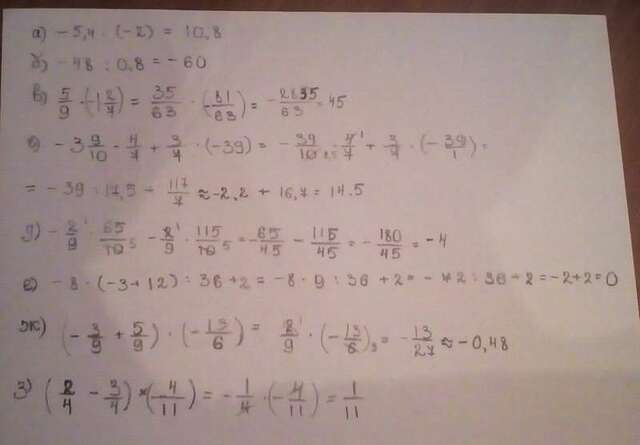 а) -5,4 · (-2) = 10,8
б) -48 : 0,8 = -60
в) 5/9 · (-1 2/7) = 35/63 · (-81/63) = -2835/63 = 45
г) -3 9/10 · 4/7 + 3/7 · (-39) = -39/10 · 4/7 + 3/7 · (-39/1) =
= -39 : 17,5 - 117/7 ≈ -2,2 + 16,7 = 14.5
д) -2/9 · 65/10 - 2/9 · 115/10 = -65/45 - 115/45 = -180/45 = -4
е) -8 · (-3+12) : 36+2 = -8 · 9 : 36 + 2 = -72 : 36 + 2 = -2+2=0
ж) (-3/9 + 5/9) · (-13/6) = 2/9 · (-13/6) = -13/27 ≈ -0,48
з) (2/4 - 3/4) · (-4/11) = -1/4 · (-4/11) = 1/11